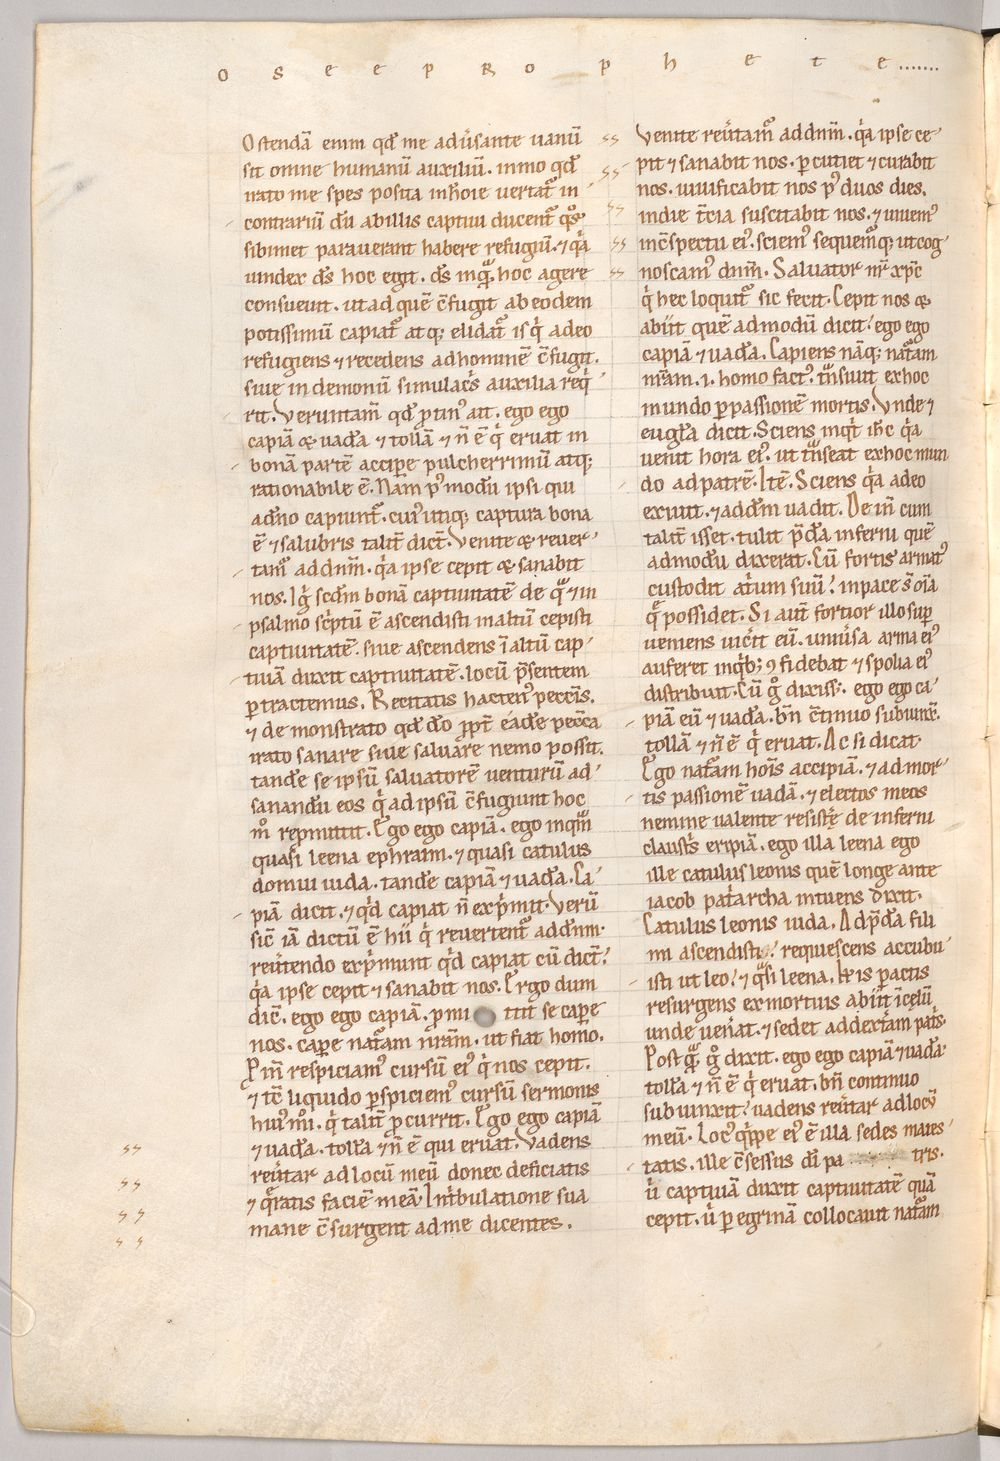 O s e e p R o p h e t e .......
Ostendā enim qđ me adūsante uanū
sit omne humanū auxiliū. inmo qđ
irato me spes posita inhoīe uertat᷑ in
contrariū dū abillis captiui ducent᷑ q̊s
sibimet parauerant habere refugiū. ⁊ q̇a
uindex dš hoc egit. dš inquā hoc agere
consueuit. ut ad quē c̄fugit ab eodem
potissimū capiat᷑ atq; elidat᷑ is q̇ adeo
refugiens ⁊ recedens ad hominē c̄fugit.
siue in demonū simulacris auxilia req̇
rit. Veruntam̄ qđ ꝑtin᷒ ait. ego ego
capiā & uadā ⁊ tollā ⁊ n̄ ē q̇ eruat in
bonā partē accipe pulcherrimū atq;
rationabile ē. Nam p᷒ modū ipsi qui
a dn̄o capiunt᷑. cui᷒ utiq; captura bona
ē ⁊ salubris talit̄ dict̄. Venite & reuer
tam᷑ ad dnm̄. q̇a ipse cepit & sanabit
nos. Iḡ scđm bonā captiuitatē de qua ⁊ in
psalmo sc̄ptū ē ascendisti in altū cepisti
captiuitatē. siue ascendens ī altū cap
tiuā duxit captiuitatē. locū p̄sentem
ꝑtractemus. Recitatis hacten᷒ pecc̄is.
⁊ demonstrato qđ dō ꝓpt̄ eadē pecc̄a
irato sanare siue saluare nemo possit.
tandē se ipsū saluatorē uenturū ad
sanandū eos q̇ ad ipsū c̄fugiunt hoc
m̊ repmittit. Ego ego capiā. ego inquā
quasi leena ephraim. ⁊ quasi catulus
domui iuda. tandē capiā ⁊ uadā. Ca
piā dicit. ⁊ q̇d capiat n̄ exp̄mit. Verū
sic̄ iā dictū ē hii q̇ reuertent᷑ ad dnm̄.
reūtendo exp̄munt q̇d capiat cū dict̄.
q̇a ipse cepit ⁊ sanabit nos. Ergo dum
dic̄. ego ego capiā. ꝓmi ttit se capere
nos. capere natām nr̄am. ut fiat homo.
Pm̄ respiciam᷒ cursū ei᷒ q̇ nos cepit.
⁊ tc̄ liquido ꝑspiciem᷒ cursū sermonis
hui᷒ m̊i. q̇ talit̄ ꝑcurrit. Ego ego capiā
⁊ uadā. tollā ⁊ n̄ ē qui eruat. Vadens
reūtar ad locū meū donec deficiatis
⁊ queratis faciē meā. In tribulatione sua
mane c̄surgent ad me dicentes.
Venite reūtam᷑ ad dnm̄. q̇a ipse ce
pit ⁊ sanabit nos. ꝑcutiet ⁊ curabit
nos. uiuificabit nos p᷒ duos dies.
in die t̄cia suscitabit nos. ⁊ uiuem᷒
in c̄spectu ei᷒. sciem᷒ sequem᷒q; ut cog
noscam᷒ dnm̄. Saluator nr̄ xpc̄
q̇ hec loquit᷑ sic fecit. Cepit nos &
abiit quē admodū dicit. ego ego
capiā ⁊ uadā. Capiens nāq; natām
nr̄am. i. homo fact᷒. tn̄siuit ex hoc
mundo ꝑ passionē mortis. Vnde ⁊
eugl̄a dicit. Sciens inq̇t ih̄c q̇a
uenit hora ei᷒. ut tn̄seat ex hoc mun
do ad patrē. Itē. Sciens q̇a a deo
exiuit. ⁊ ad dm̄ uadit. Dein̄ cum
talit̄ isset. tulit p̄dā inferni quē
admodū dixerat. Cū fortis armat᷒
custodit atrium suū. in pace s̄ oīa
quę possidet. Si aut̄ fortior illo suꝑ
ueniens uic̄it eū. uniūsa arma ei᷒
auferet in q̇b; ꝯfidebat ⁊ spolia ei᷒
distribuit. Cū ḡ dixiss;. ego ego ca
piā eū ⁊ uadā. bn̄ c̄tinuo subiunx̄.
tollā ⁊ n̄ ē q̇ eruat. Ac si dicat.
Ego natām hoīs accipiā. ⁊ ad mor
tis passionē uadā. ⁊ electos meos
nemine ualente resistere de inferni
claustris eripiā. ego illa leena ego
ille catulus leonis quē longe ante
iacob patriarcha intuens dixit.
Catulus leonis iuda. Ad p̄dā fili
mi ascendisti. requiescens accubu
isti ut leo. ⁊ quasi leena. His ꝑactis
resurgens ex mortuis abiit ī cęlū
unde uen̄at. ⁊ sedet ad dext̄am patris.
Postquā ḡ dixit. ego ego capiā ⁊ uadā
tollā ⁊ n̄ ē q̇ eruat. bn̄ continuo
subiunxit. uadens reūtar ad locū
meū. Loc᷒ quippe ei᷒ ē illa sedes maies
tatis. ille c̄sessus dī pa tris.
u̇ captiuā duxit captiuitatē quā
cepit. u̇ ꝑegrinā collocauit natām